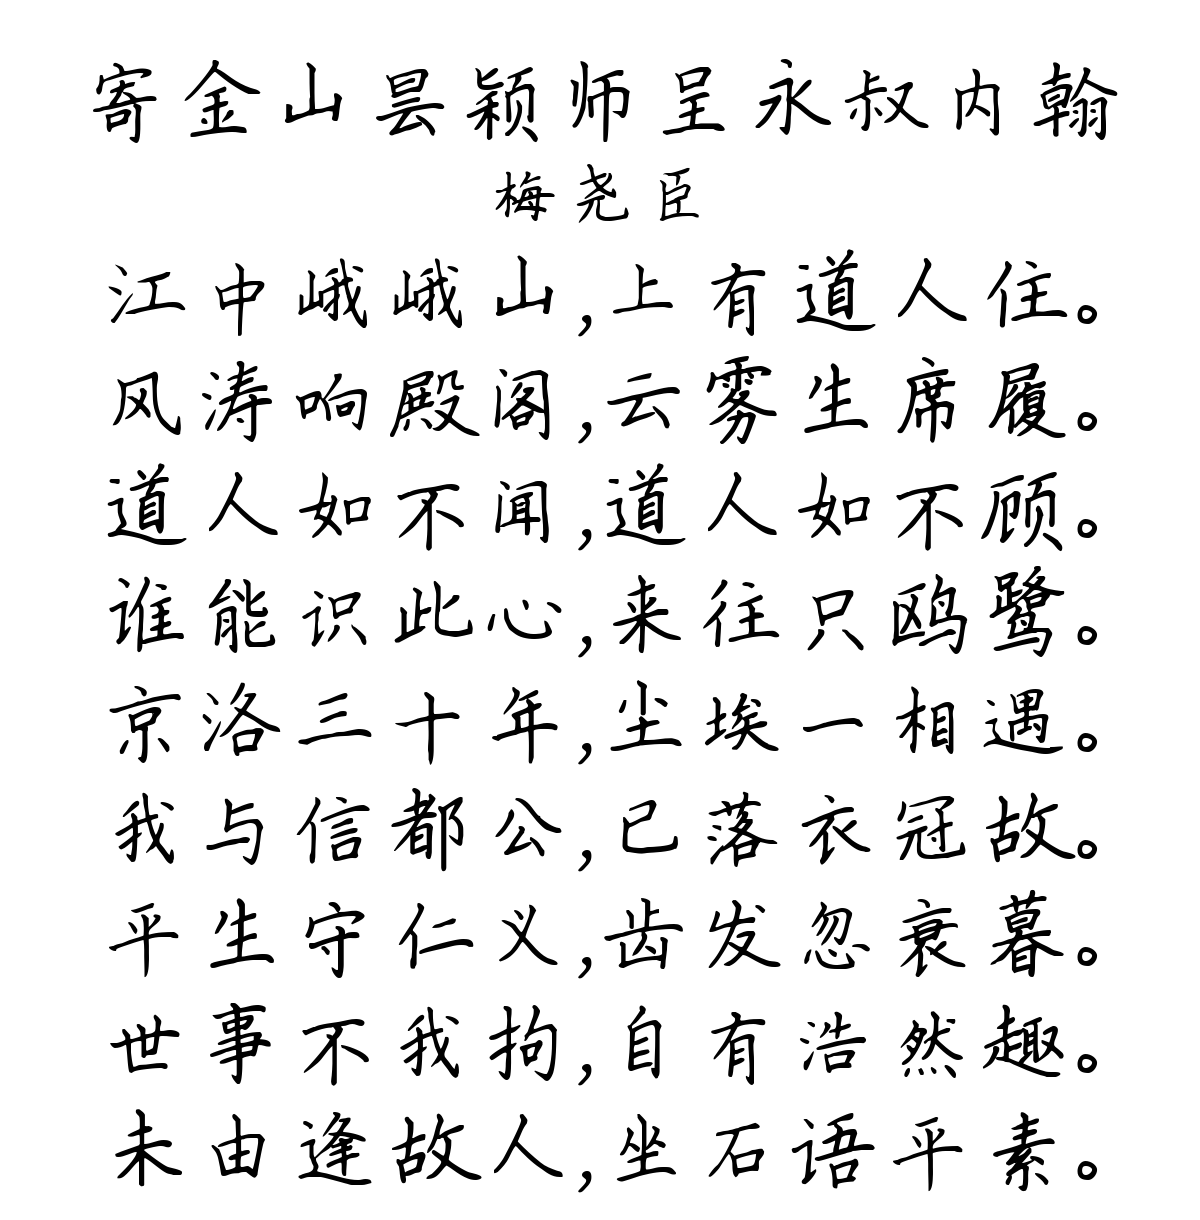 寄金山昙颖师呈永叔内翰
梅尧臣
江中峨峨山,上有道人住。
风涛响殿阁,云雾生席履。
道人如不闻,道人如不顾。
谁能识此心,来往只鸥鹭。
京洛三十年,尘埃一相遇。
我与信都公,已落衣冠故。
平生守仁义,齿发忽衰暮。
世事不我拘,自有浩然趣。
未由逢故人,坐石语平素。